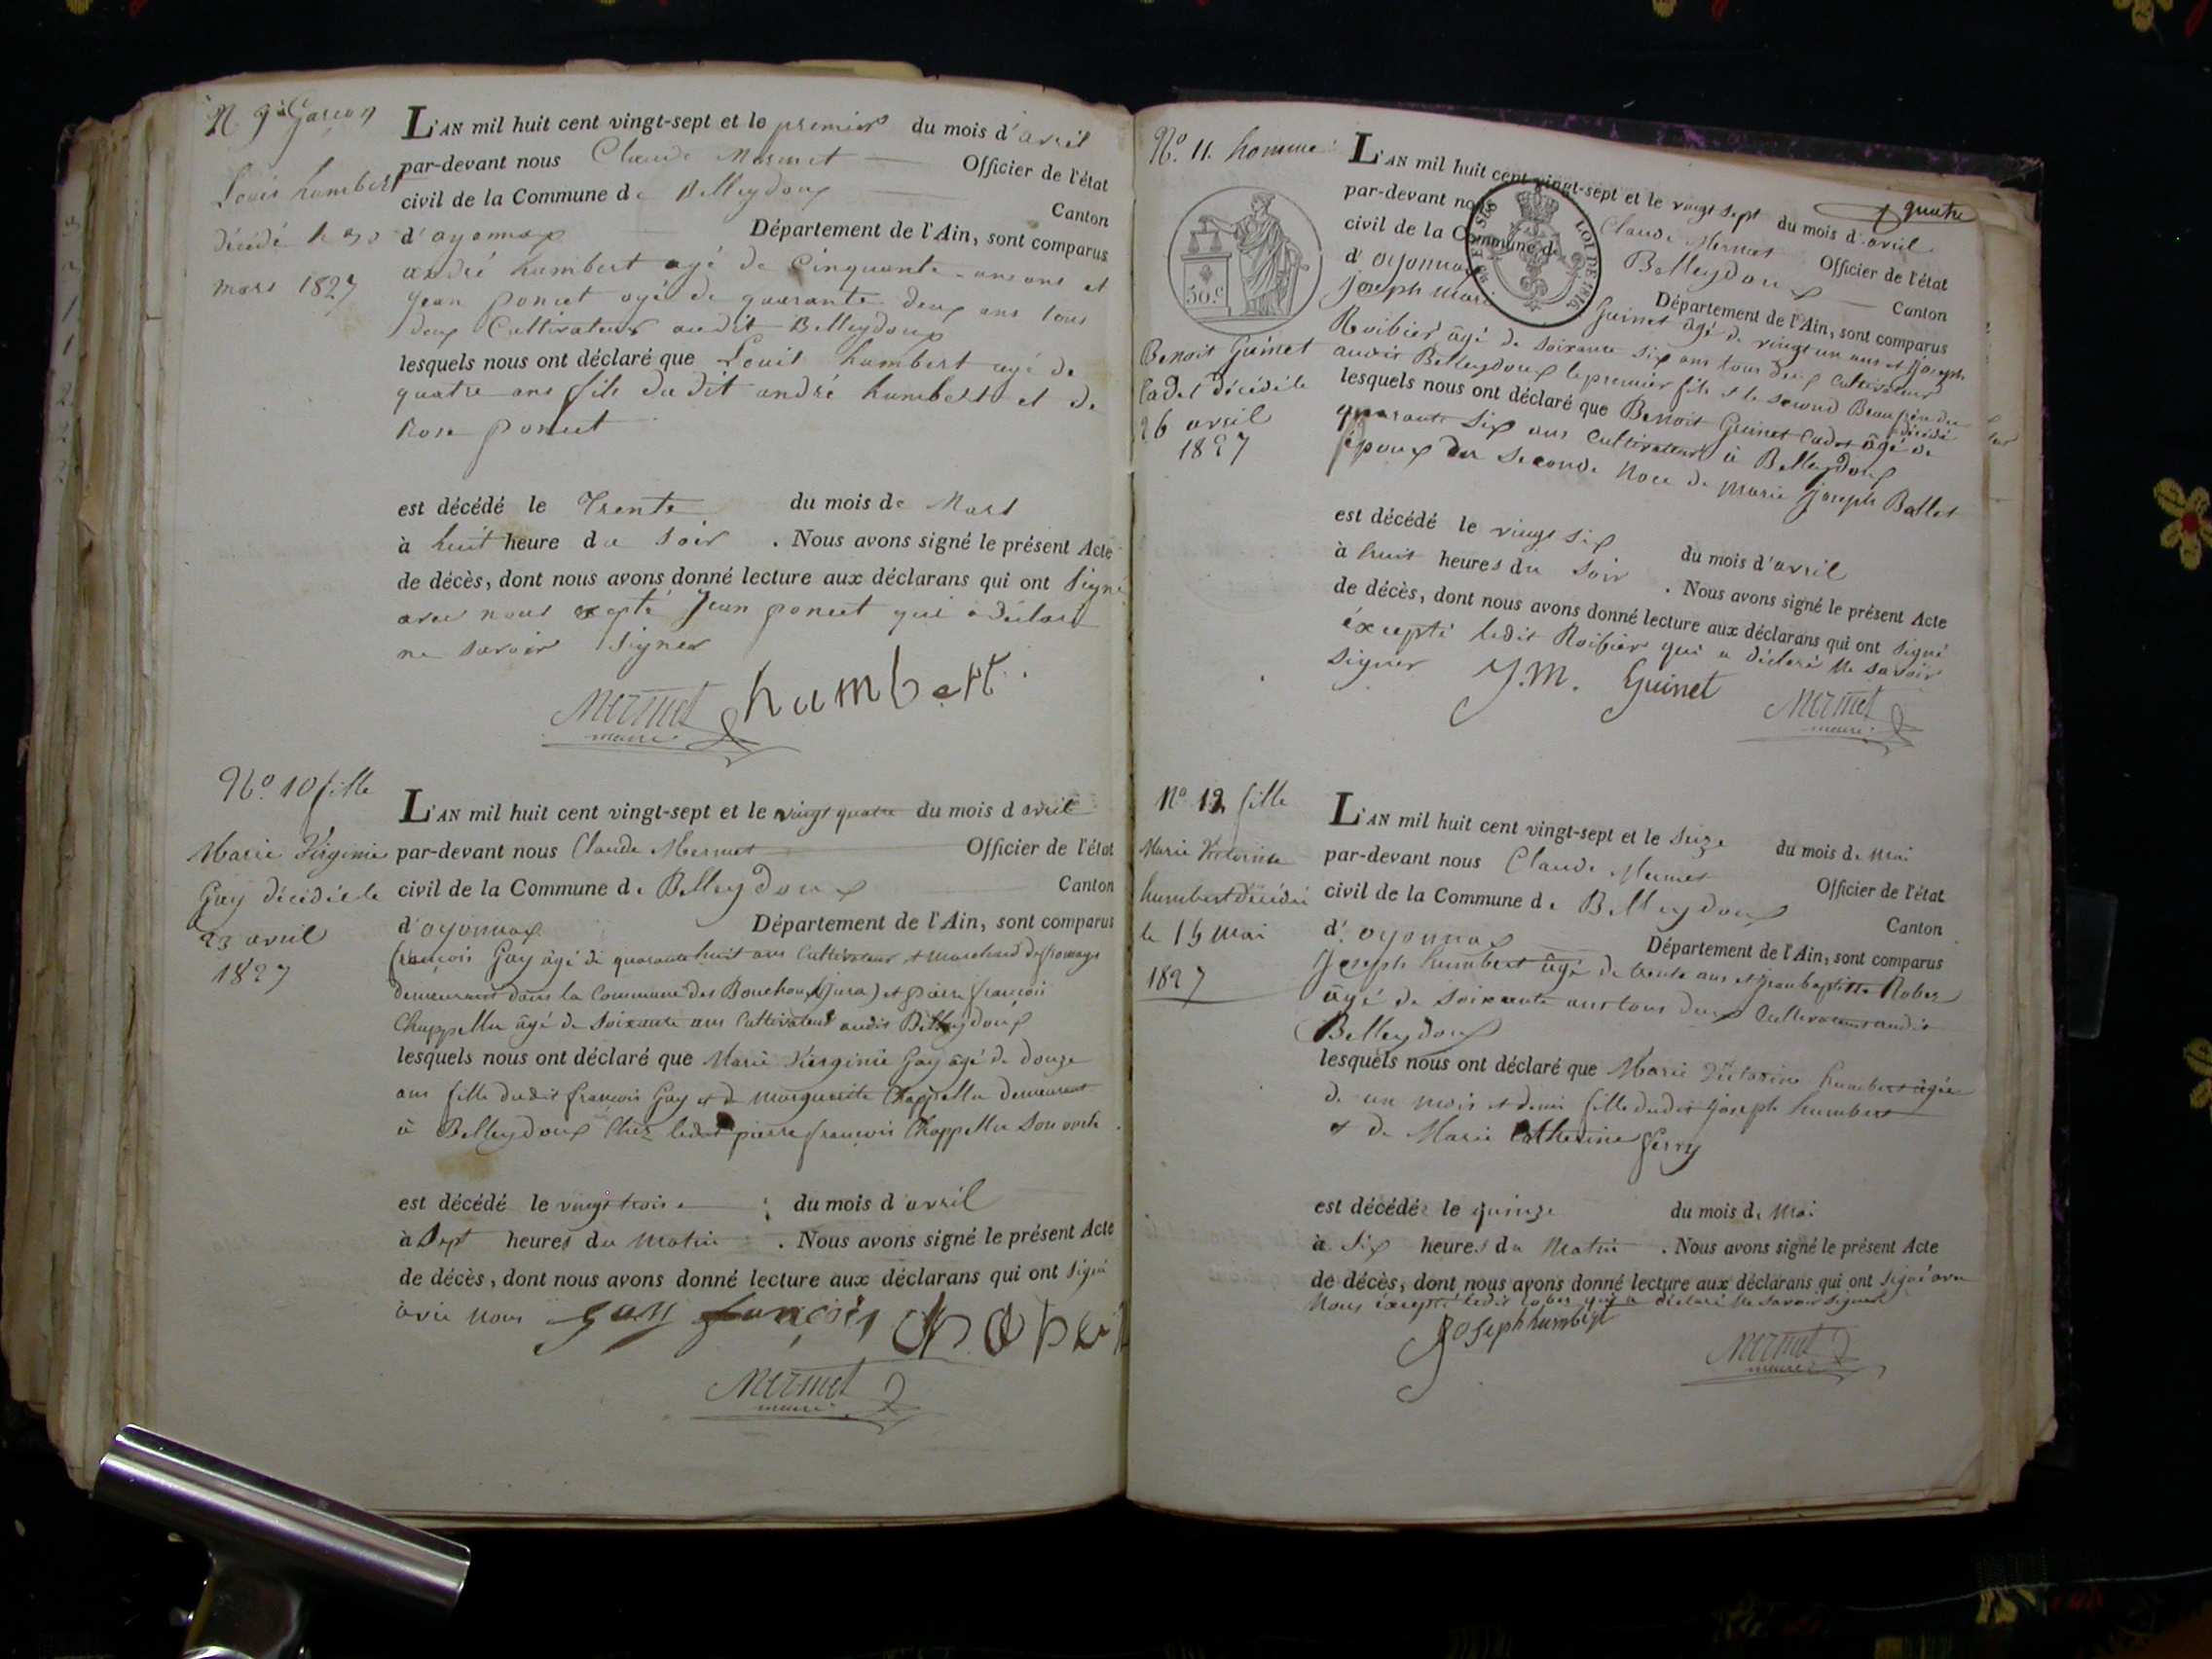 N. 9 Garçon
Louis humbert
décédé le 30
mars 1827
L'AN mil huit cent vingt-sept et le premier du mois d'avril
par-devant nous Claude Mermet Officier de l'état
civil de la Commune de Belleydoux Canton
d'oyonnax Département de l'Ain, sont comparus
andré humbert agé de Cinquante ans et
Jean poncet agé de quarante deux ans tous
deux Cultivateurs audit Belleydoux
lesquels nous ont déclaré que Louis humbert agé de
quatre ans fils dudit andré humbert et de
Rose poncet
est décédé le Trente du mois de Mars
à huit heure du Soir . Nous avons signé le présent Acte
de décès, dont nous avons donné lecture aux déclarans qui ont Signé
avec nous excepté Jean poncet qui a déclaré
ne savoir Signer
Mermet humbert
maire
No. 10 fille
Marie Virginie
Gay décédée le
23 avril
1827
L'AN mil huit cent vingt-sept et le vingt quatre du mois d avril
par-devant nous Claude Mermet Officier de l'état
civil de la Commune de Belleydoux Canton
d'oyonnax Département de l'Ain, sont comparus
françois Gay âgé de quarante huit ans Cultivateur et marchand de fromage
demeurant dans la Commune des Bouchoux (jura) et pierre françois
Chappellu âgé de Soixante ans Cultivateur audit Belleydoux
lesquels nous ont déclaré que Marie Virginie Gay âgé de douze
ans fille dudit françois Gay et de marguerite Chappellu demeurant
à Belleydoux Chez ledit pierre françois Chappellu Son oncle
est décédé le vingt trois du mois d avril
à Sept heures du matin . Nous avons signé le présent Acte
de décès, dont nous avons donné lecture aux déclarans qui ont Signé
avec nous gay françois
Mermet
maire
quatre
No. 11. homme
30.C
TIMBRE
LOI DE 1816.
Benoit Guinet
Cadet décédé le
26 avril
1827
L'AN mil huit cent vingt-sept et le vingt Sept du mois d'avril
par-devant nous Claude Mermet Officier de l'état
civil de la Commune de Belleydoux Canton
d'oyonnax Département de l'Ain, sont comparus
joseph marie Guinet âgé de vingt un ans et Joseph
Roibier âgé de Soixante Six ans tous deux Cultivateurs
audit Belleydoux le premier fils et le Second Beau frère du décédé
lesquels nous ont déclaré que Benoit Guinet Cadet âgé de
quarante Six ans Cultivateur à Belleydoux
époux en Seconde Noce de marie Joseph Ballet
est décédé le vingt Six du mois d'avril
à huit heures du Soir . Nous avons signé le présent Acte
de décès, dont nous avons donné lecture aux déclarans qui ont Signé
éxcepté ledit Roibier qui a déclaré Ne Savoir
Signer J.M. Guinet Mermet
maire
No 12 fille
Marie Victorine
humbert décédée
le 15 Mai
1827
L'AN mil huit cent vingt-sept et le Seize du mois de Mai
par-devant nous Claude Mermet Officier de l'état
civil de la Commune de Belleydoux Canton
d'oyonnax Département de l'Ain, sont comparus
Joseph humbert âgé de trente ans et jean baptiste Rober
âgé de Soixante ans tous deux Cultivateurs audit
Belleydoux
lesquels nous ont déclaré que Marie Victorine humbert âgée
de un mois et demi fille dudit joseph humbert
et de Marie Catherine ferry
est décédée le quinze du mois de Mai
à Six heures du Matin . Nous avons signé le présent Acte
de décès, dont nous avons donné lecture aux déclarans qui ont Signé avec
Nous éxcepté ledit Rober qui a déclaré Ne Savoir Signer
Joseph humbert
Mermet
maire